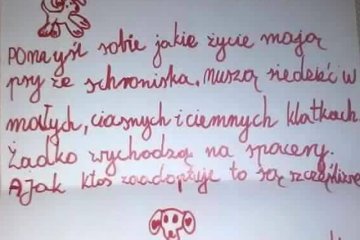 Pomyśl sobie jakie życie mają
psy ze schroniska. Muszą siedzieć w
małych, ciasnych i ciemnych klatkach.
Żadko wychodzą na spacery.
A jak ktoś zaadoptuje to są szczęśliwe